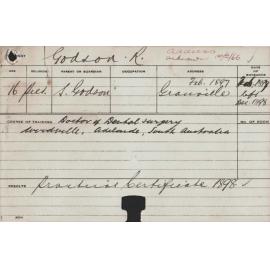 Godson R.
AGE RELIGION PARENT OR GUARDIAN OCCUPATION ADDRESS DATE OF ENTRANCE
Feb. 1897
16 Pres. S. Godson Granville
left
Dec 1898
COURSE OF TRAINING Doctor of Dental Surgery
Woodville, Adelaide, South Australia
RESULTS
Certificate 1898